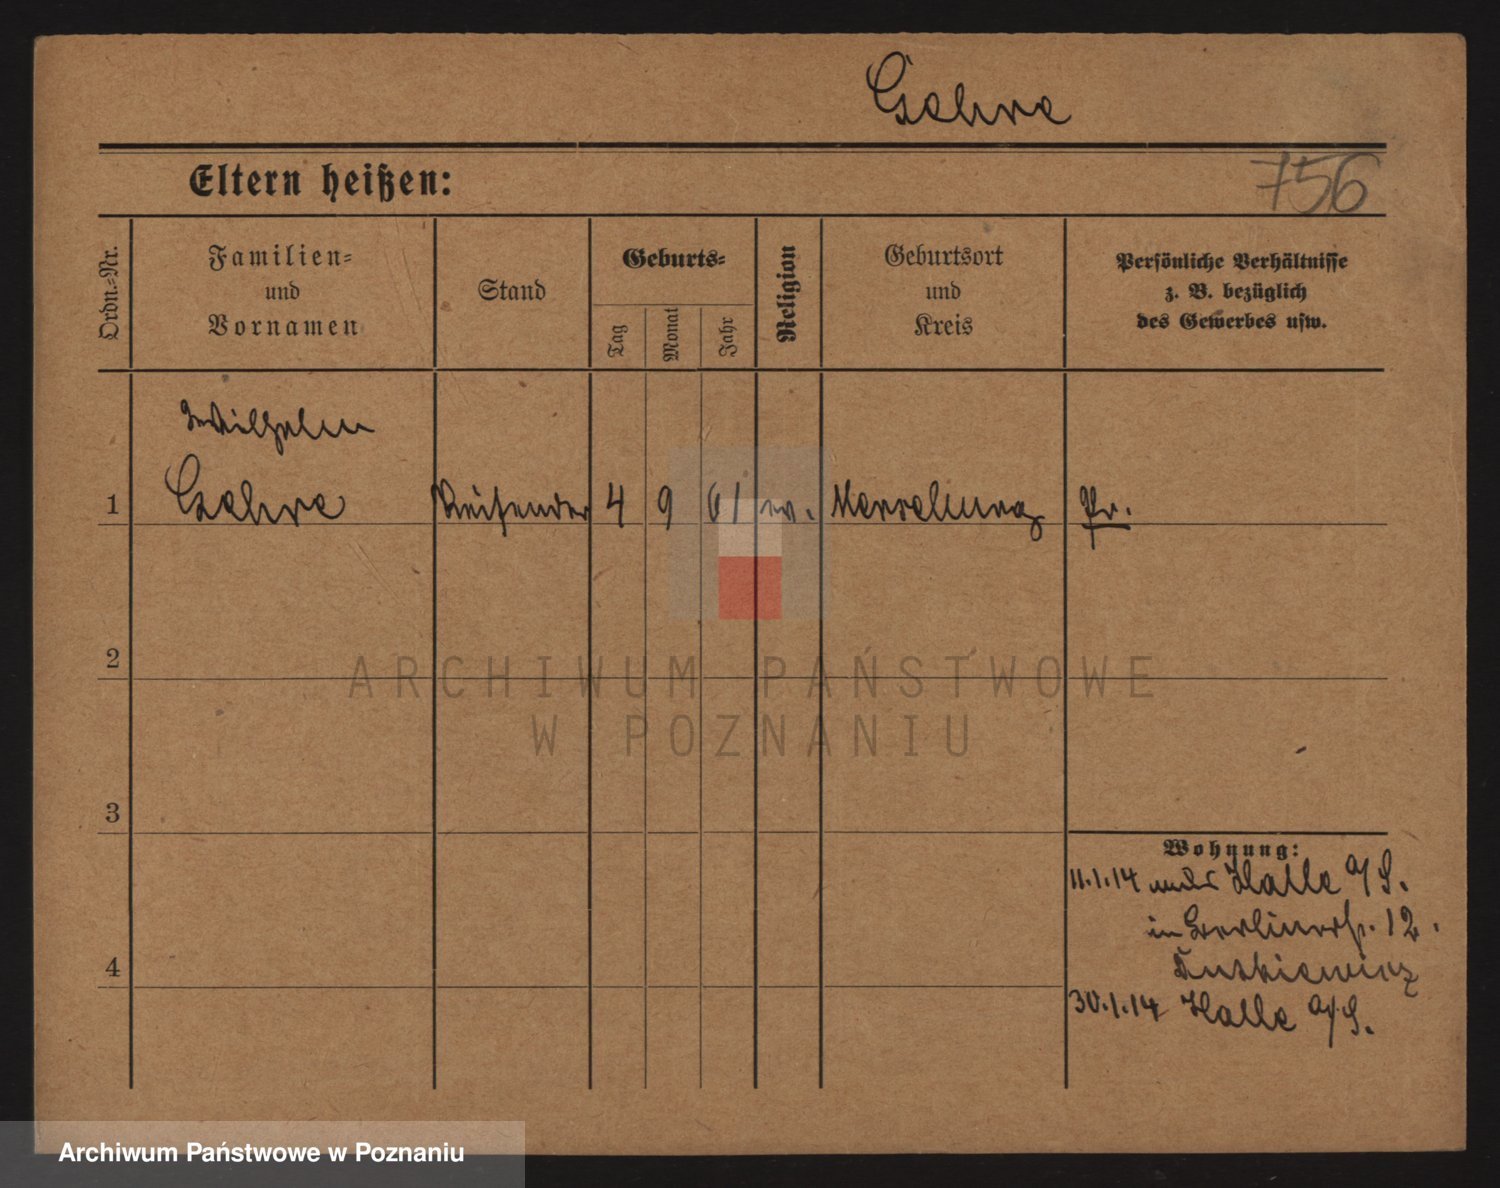 Gehre
756
Eltern heißen:
Ordn.-Nr.
Familien-
und
Vornamen
Stand
Geburts-
Tag
Monat
Jahr
Religion
Geburtsort
und
Kreis
Persönliche Verhältnisse
z. B. bezüglich
des Gewerbes usw.
Wilhelm
1 Gehre Reisender 4 9 61 ev. Merseburg Pr.
2
3
4
Wohnung:
11.1.14 Halle a/S.
in Berlinerstr. 12.
30.1.14 Halle a/S.
ARCHIWUM PAŃSTWOWE
W POZNANIU
Archiwum Państwowe w Poznaniu